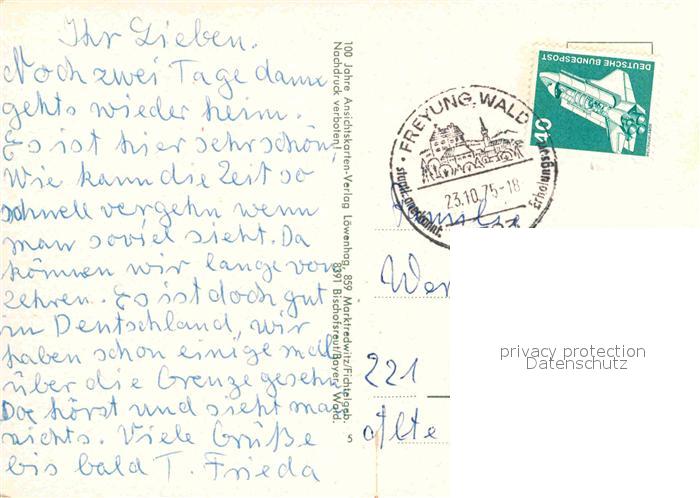 Ihr Lieben.
Noch zwei Tage dann
gehts wieder heim.
Es ist hier sehr schön
Wie kann die Zeit so
schnell vergehn wenn
man soviel sieht. Da
können wir lange von
zehren. Es ist doch gut
in Deutschland, wir
haben schon einige mal
über die Grenze gesehn
Da hörst und sieht man
nichts. Viele Grüße
bis bald T. Frieda
100 Jahre Ansichtskarten-Verlag Löwenhag, 859 Marktredwitz/Fichtelgeb.
Nachdruck verboten! 8391 Bischofsreut/Bayer. Wald.
5
FREYUNG, WALD
23.10.75-18
staatl. anerkannt.
Erholungsort
DEUTSCHE BUNDESPOST
40
Familie
Wer
221
Alte
privacy protection
Datenschutz